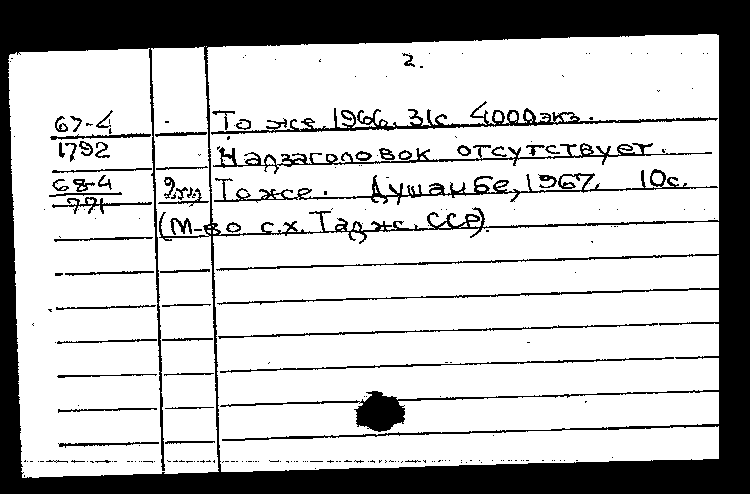 2.
67-4 То же. 1966. 31с. 4000экз.
1792 Надзаголовок отсутствует.
68-4 То же. Душанбе, 1967. 10с.
771 (М-во с.х. Тадж. ССР)